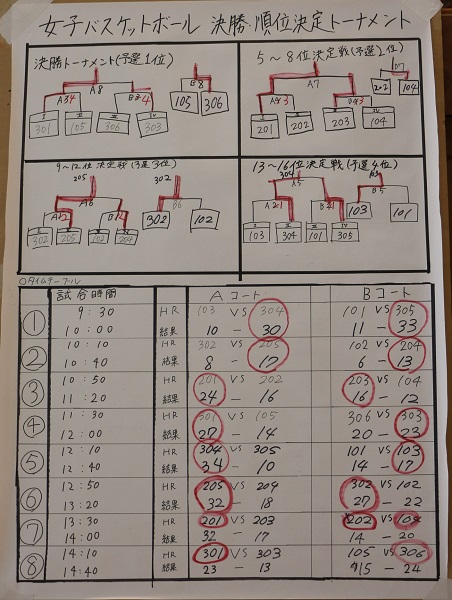 女子バスケットボール 決勝・順位決定トーナメント
決勝トーナメント(予選1位)
A8
A34
B34
I II III IV
301 105 306 303
B8
105 306
5～8位決定戦(予選2位)
A7
201 202 203 104
202 104
9～12位決定戦(予選3位)
205 302
A6
302 205 102 204
B6
302 102
13～16位決定戦(予選4位)
304
A5
A21 B21
103 304 101 305
B5
103 101
○タイムテーブル
試合時間 Aコート Bコート
① 9:30 HR 103 VS 304 101 VS 305
10:00 結果 10 - 30 11 - 33
② 10:10 HR 302 VS 205 102 VS 204
10:40 結果 8 - 17 6 - 13
③ 10:50 HR 201 VS 202 203 VS 104
11:20 結果 24 - 16 16 - 12
④ 11:30 HR 301 VS 105 306 VS 303
12:00 結果 27 - 14 20 - 23
⑤ 12:10 HR 304 VS 305 101 VS 103
12:40 結果 34 - 10 14 - 17
⑥ 12:50 HR 205 VS 204 302 VS 102
13:20 結果 32 - 18 27 - 22
⑦ 13:30 HR 201 VS 203 202 VS 104
14:00 結果 32 - 17 14 - 20
⑧ 14:10 HR 301 VS 303 105 VS 306
14:40 結果 23 - 13 15 - 24